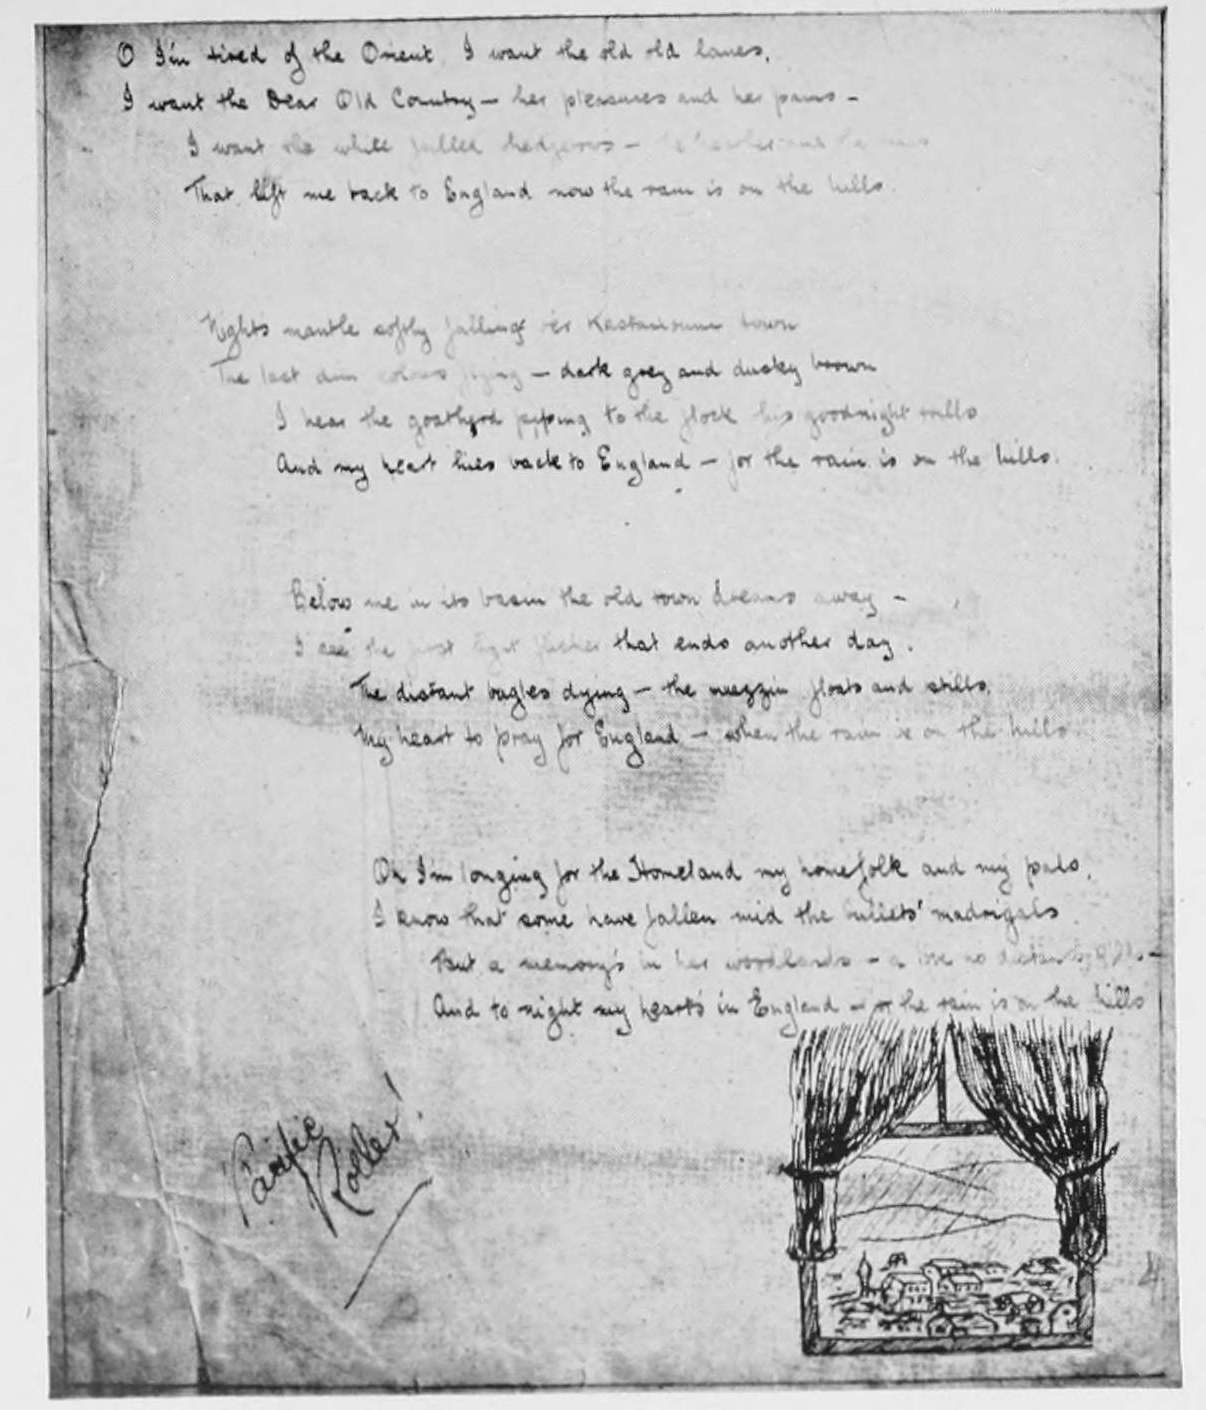 O I'm tired of the Orient I want the old old lanes,
I want the Dear Old Country – her pleasures and her pains –
I want the white hedgerows –
That lift me back to England now the rain is on the hills.
Nights mantle softly falling o'er Kastamouni town
The last dim – dark grey and dusky brown
I hear the goatherd piping to the flock his goodnight trills
And my heart hies back to England – for the rain is on the hills.
Below me in its basin the old town dreams away –
I see the first light flicker that ends another day.
The distant bugles dying – the muezzin floats and stills,
My heart to pray for England – when the rain is on the hills.
Oh I'm longing for the Homeland my homefolk and my pals,
I know that some have fallen mid the bullets' madrigals
But a memory's in her woodlands – a love no distance –
And to night my heart's in England – for the rain is on the hills
Pacific
Roller!